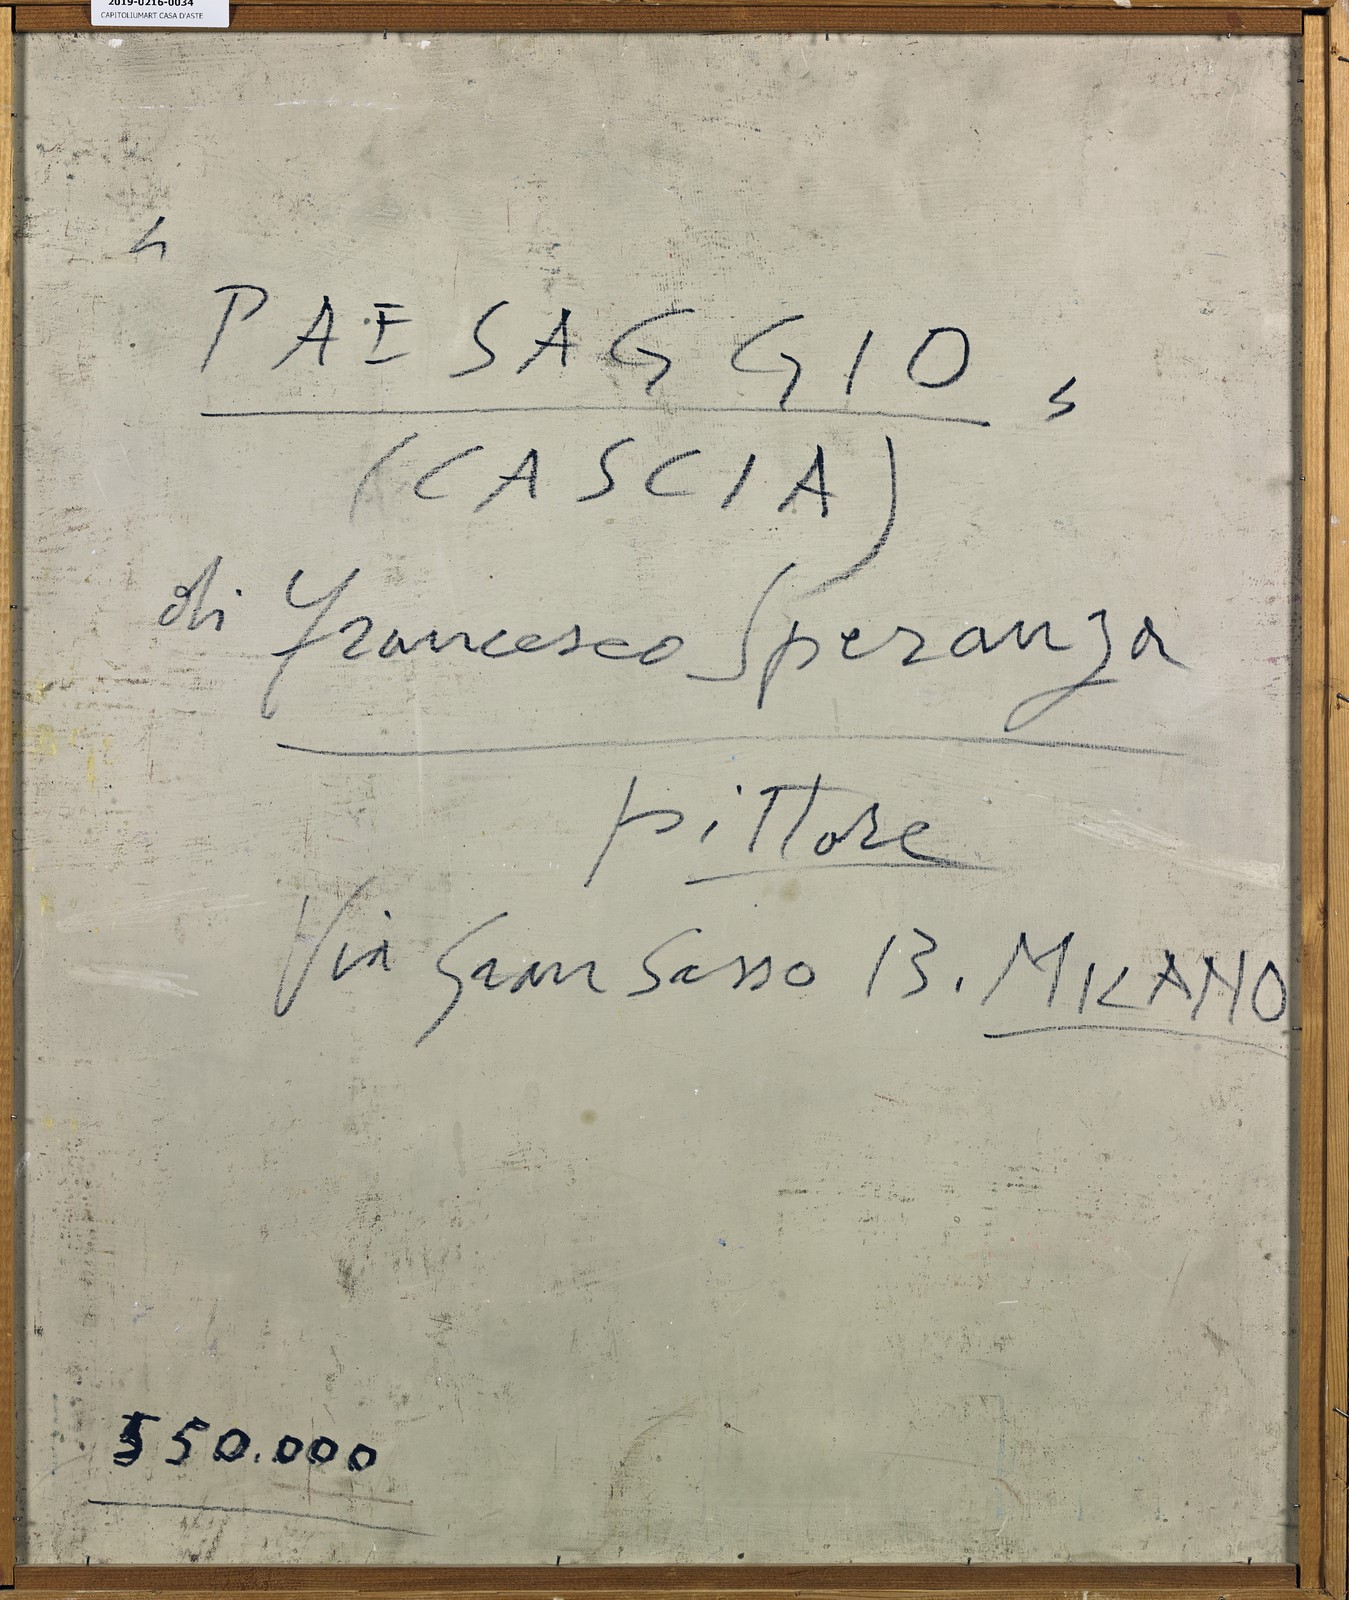 2019-0216-0034
CAPITOLIUMART CASA D'ASTE
" PAESAGGIO "
(CASCIA)
di Francesco Speranza
pittore
Via Gran Sasso 13. MILANO
550.000